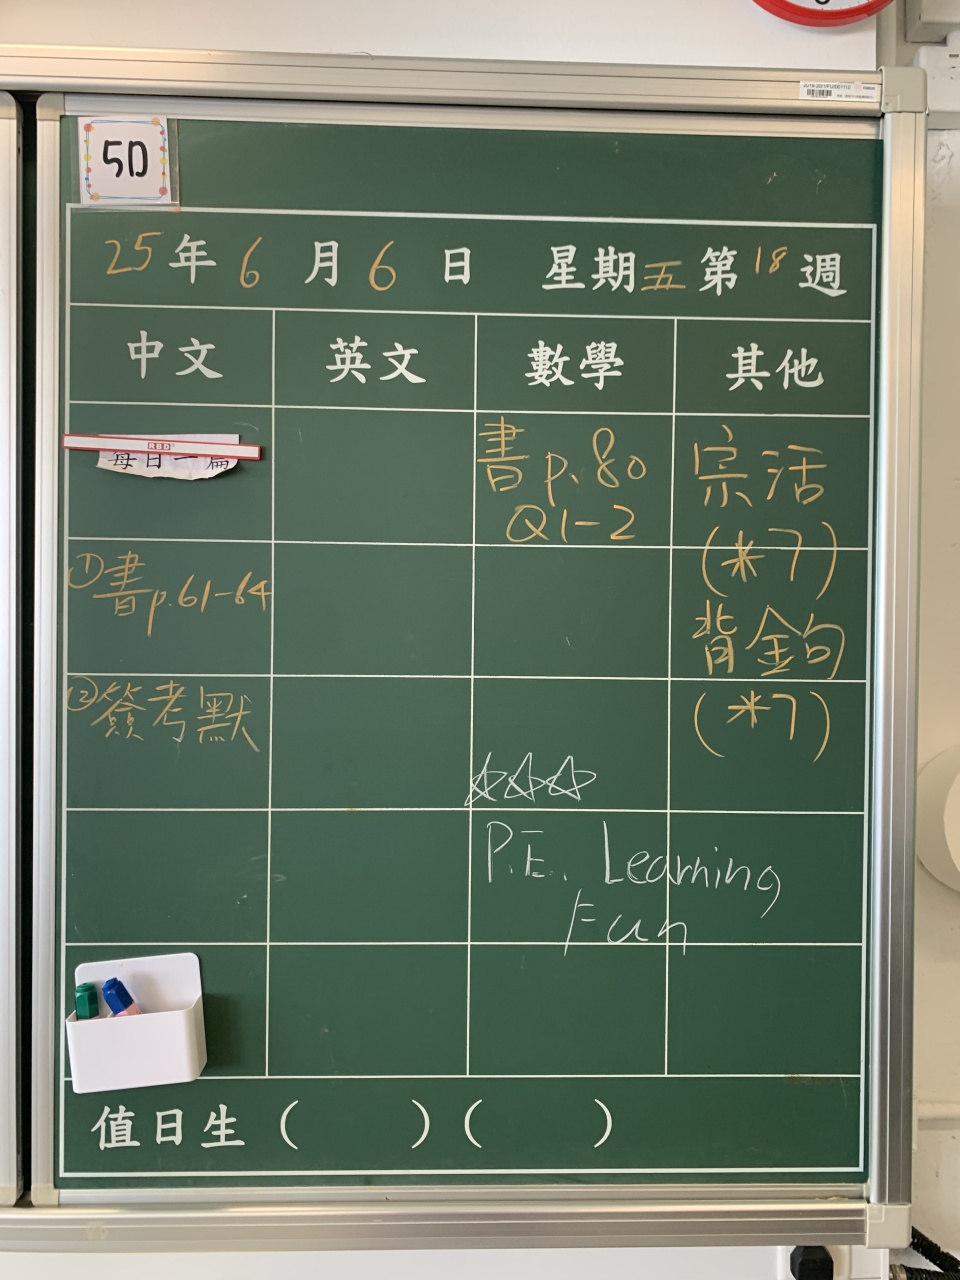 5D
25年6月6日 星期五第18週
中文 英文 數學 其他
RBD
每日一篇
書p.80
Q1-2
宗活
(*7)
①書p.61-64
背金句
(*7)
②簽考默
P.E. Learning
Fun
值日生（ ）（ ）